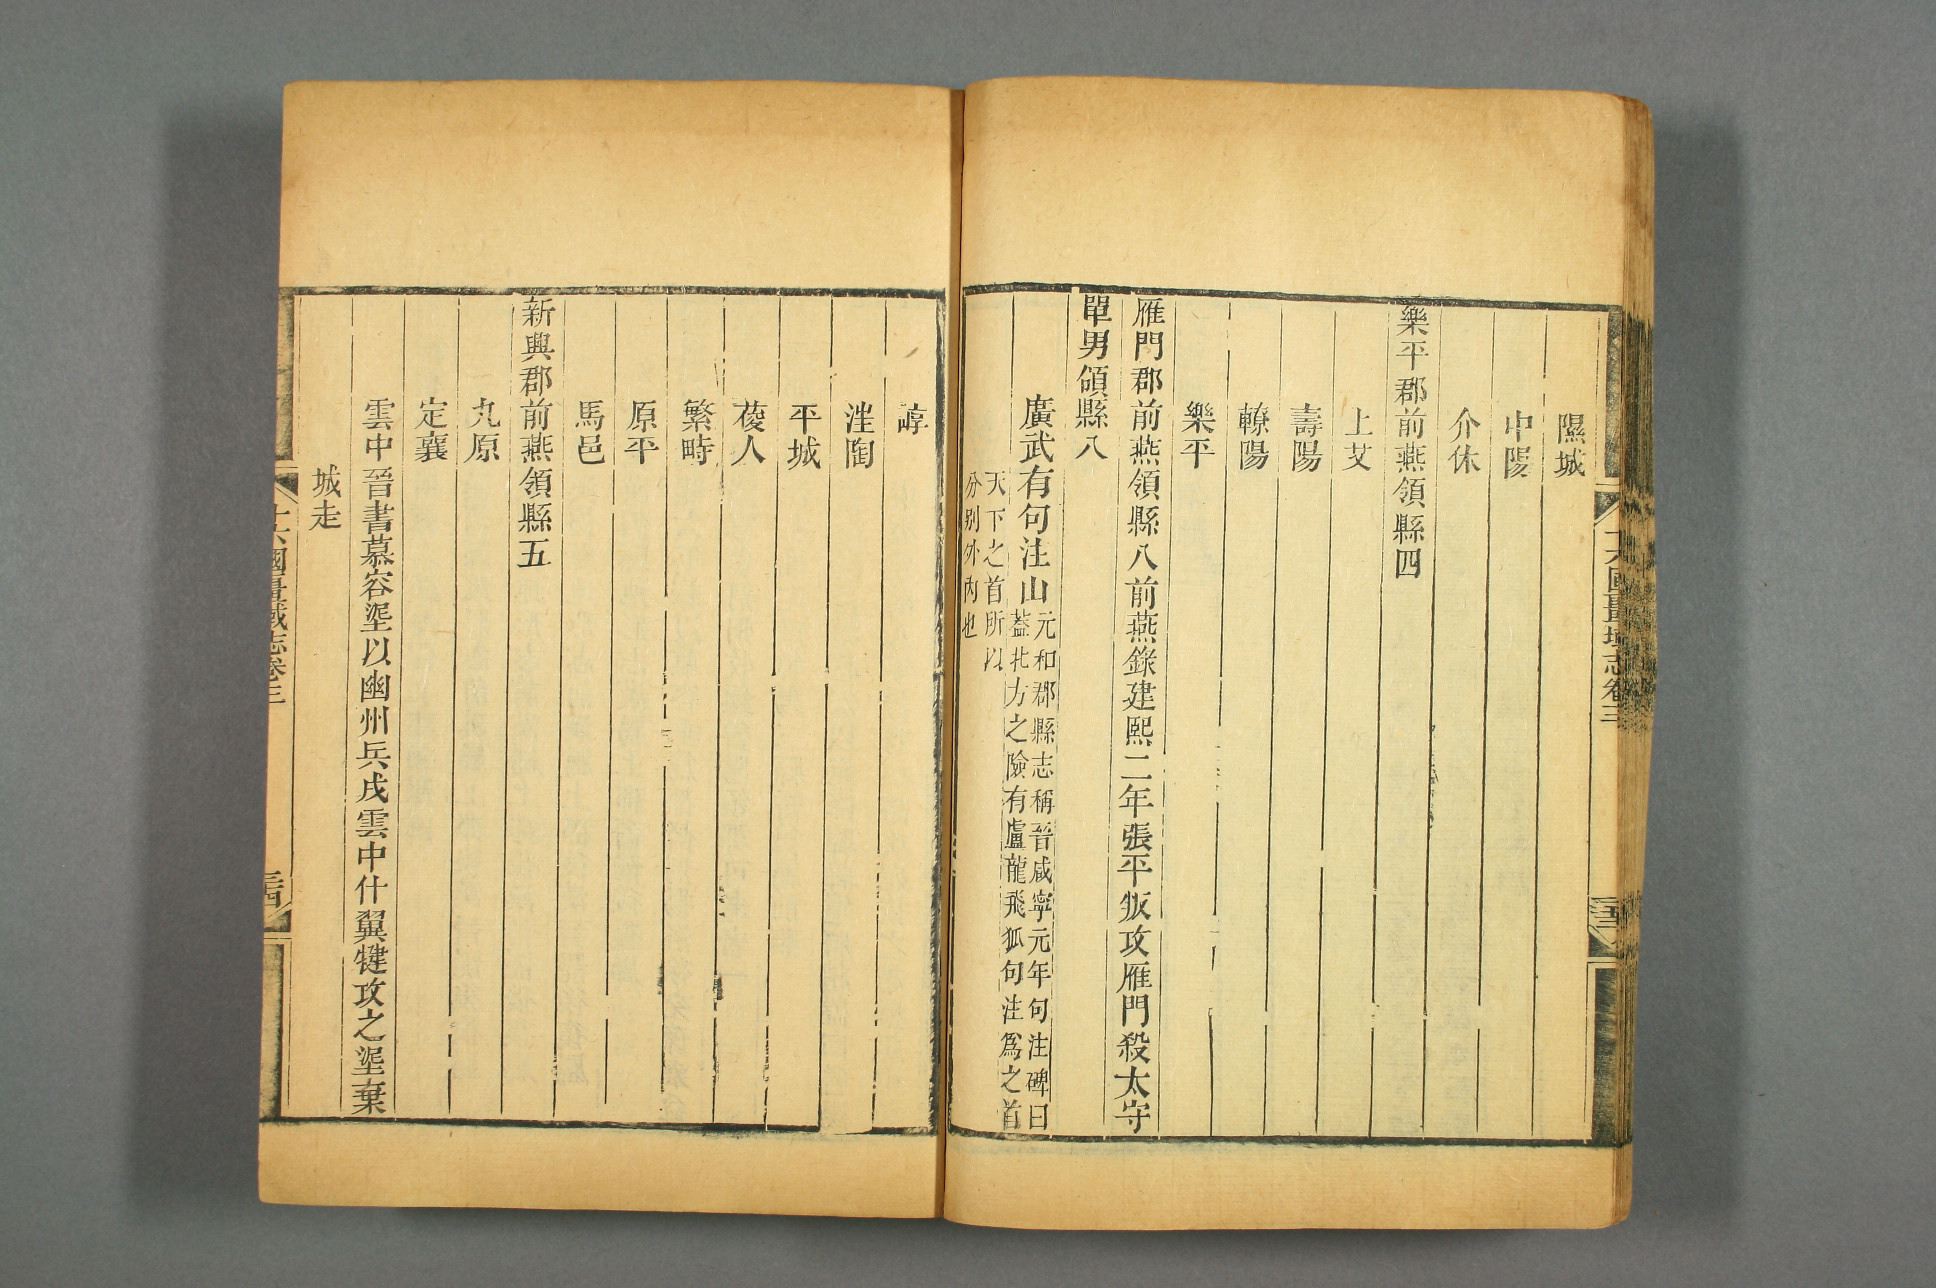 十六國疆域志卷三
隰城
中陽
介休
樂平郡前燕領縣四
上艾
壽陽
轑陽
樂平
雁門郡前燕領縣八前燕錄建熙二年張平叛攻雁門殺太守
單男領縣八
廣武有句注山元和郡縣志稱晉咸寧元年句注碑曰
蓋北方之險有盧龍飛狐句注爲之首
天下之首所以
分别外內也
崞
汪陶
平城
葰人
繁畤
原平
馬邑
新興郡前燕領縣五
九原
定襄
雲中晉書慕容垽以幽州兵戍雲中什翼犍攻之垽棄
城走
十六國疆域志卷三